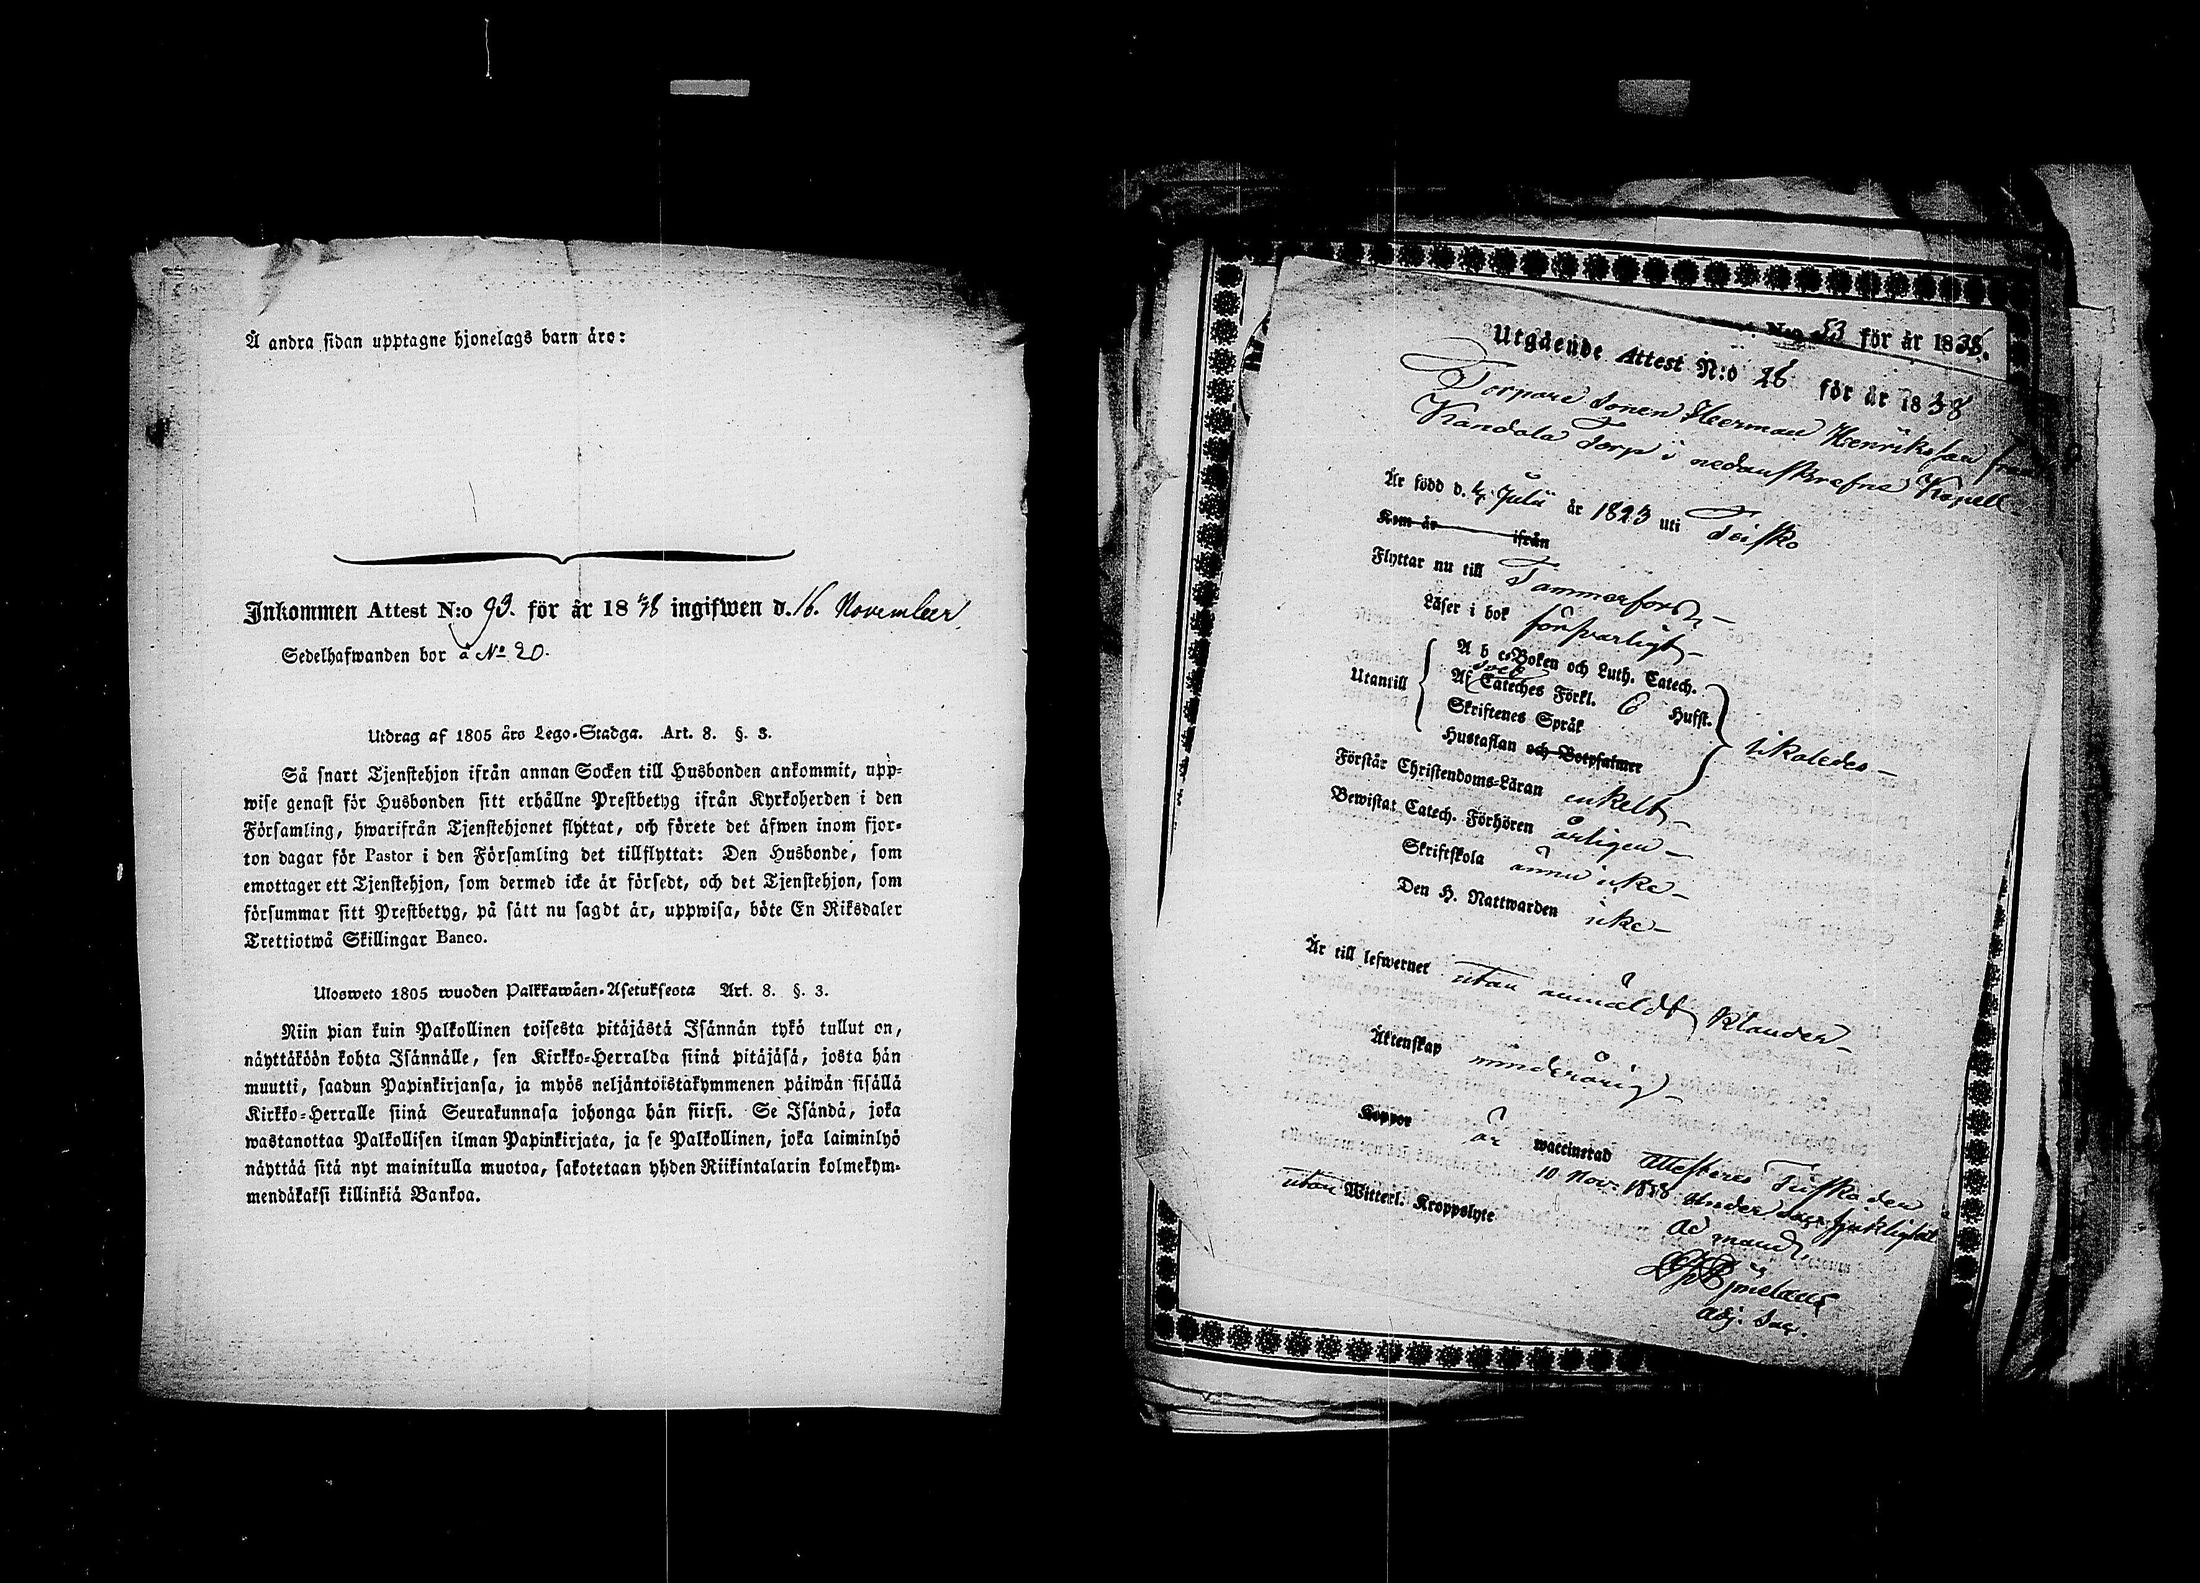 Å andra sidan upptagne hjonelags barn äro:
Inkommen Attest N:o 93. för år 1838 ingifwen d. 16. November
Sedelhafwanden bor å No 20.
Utdrag af 1805 års Lego-Stadga. Art. 8. §. 3.
Så snart Tjenstehjon ifrån annan Socken till Husbonden ankommit, upp-
wise genast för Husbonden sitt erhållne Prestbetyg ifrån Kyrkoherden i den
Församling, hwarifrån Tjenstehjonet flyttat, och förete det äfwen inom fjor-
ton dagar för Pastor i den Församling det tillflyttat: Den Husbonde, som
emottager ett Tjenstehjon, som dermed icke är försedt, och det Tjenstehjon, som
försummar sitt Prestbetyg, på sätt nu sagdt är, uppwisa, böte En Riksdaler
Trettiotwå Skillingar Banco.
Ulosweto 1805 wuoden Palkkawäen-Asetuksesta Art. 8. §. 3.
Niin pian kuin Palkollinen toisesta pitäjästä Isännän tykö tullut on,
näyttäköön kohta Isännälle, sen Kirkko-Herralda siinä pitäjäsä, josta hän
muutti, saadun Papinkirjansa, ja myös neljäntoistakymmenen päiwän sisällä
Kirkko-Herralle siinä Seurakunnasa johonga hän siirsi. Se Isändä, joka
wastanottaa Palkollisen ilman Papinkirjata, ja se Palkollinen, joka laiminlyö
näyttää sitä nyt mainitulla muotoa, sakotetaan yhden Riikintalarin kolmekym-
mendäkaksi killinkiä Bankoa.
N:o 53 för år 1838.
Utgående Attest N:o 26 för år 1838
Torpare Sonen Herman Henriksson från
Kandala Torp i nedanskrefne Kapell
Är född d. 4 Julii år 1823 uti Teisko
Kom år ifrån
Flyttar nu till Tammerfors
Läser i bok försvarligt
Utantill
A b c-Boken och Luth. Catech.
Af Svebs Cateches Förkl. 6 Hufst.
Skriftenes Språk
Hustaflan och Botpsalmer
likaledes
Förstår Christendoms-Läran enkelt
Bewistat Catech. Förhören årligen
Skriftskola ännu icke
Den H. Nattwarden icke
Är till lefwernet utan anmäldt klander
Äktenskap minderårig
Koppor är waccinerad Attesteres Teisko den
10 Nov. 1838 under
utan Witterl. Kroppslyte
Adj. Sac.